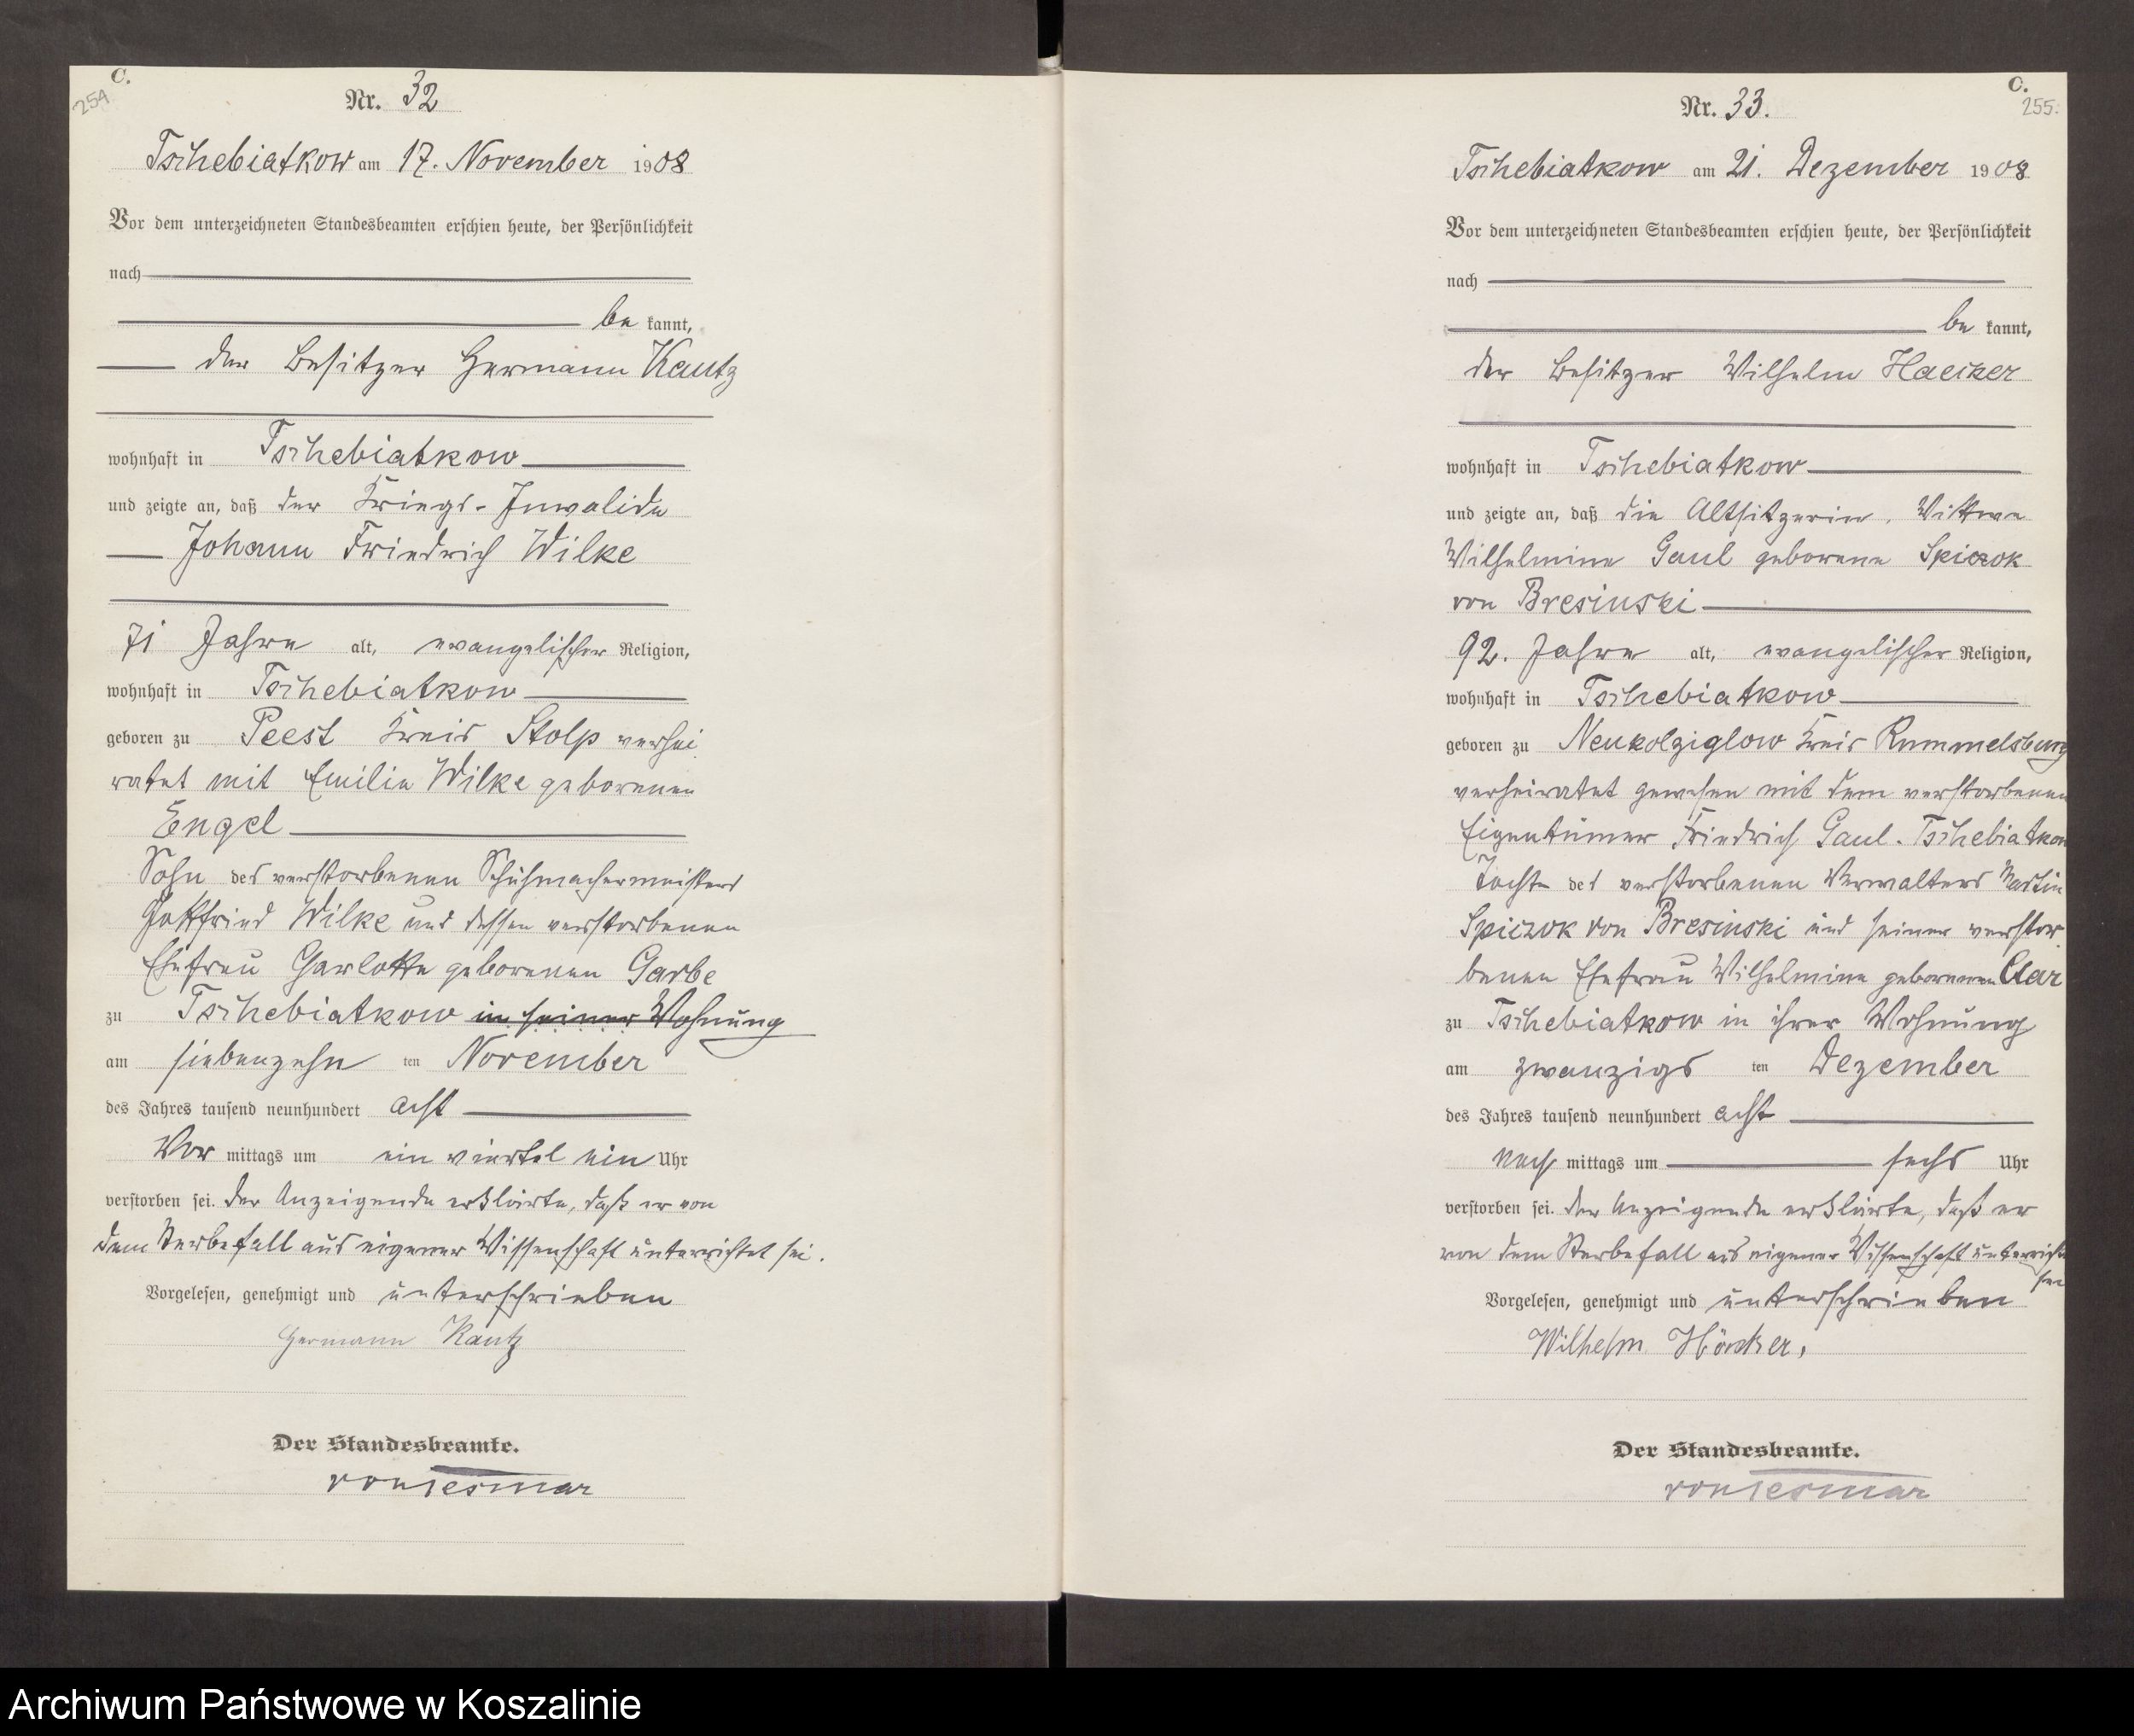 C.
254
Nr. 32
Tschebiatkow am 17. November 1908
Vor dem unterzeichneten Standesbeamten erschien heute, der Persönlichkeit
nach
be kannt,
der Besitzer Hermann Kautz
wohnhaft in Tschebiatkow
und zeigte an, daß der Kriegs-Invalide
Johann Friedrich Wilke
71 Jahre alt, evangelischer Religion,
wohnhaft in Tschebiatkow
geboren zu Peest Kreis Stolp verhei
ratet mit Emilie Wilke geborenen
Engel
Sohn des verstorbenen Schuhmachermeisters
Gottfried Wilke und dessen verstorbenen
Ehefrau Carlotte geborenen Garbe
zu Tschebiatkow in seiner Wohnung
am siebenzehn ten November
des Jahres tausend neunhundert acht
Vor mittags um ein viertel ein Uhr
verstorben sei. Der Anzeigende erklärte, daß er von
dem Sterbefall aus eigener Wissenschaft unterrichtet sei.
Vorgelesen, genehmigt und unterschrieben
Hermann Kautz
Der Standesbeamte.
von Tesmar
C.
255.
Nr. 33.
Tschebiatkow am 21. Dezember 1908
Vor dem unterzeichneten Standesbeamten erschien heute, der Persönlichkeit
nach
be kannt,
der Besitzer Wilhelm Haecker
wohnhaft in Tschebiatkow
und zeigte an, daß die Altsitzerin, Wittwe
Wilhelmine Gaul geborene Spiczok
von Bresinski
92. Jahre alt, evangelischer Religion,
wohnhaft in Tschebiatkow
geboren zu Neukolziglow Kreis Rummelsburg
verheiratet gewesen mit dem verstorbenen
Eigentümer Friedrich Gaul. Tschebiatkow
Tocht des verstorbenen Verwalters Martin
Spiczok von Bresinski und seiner verstor
benen Ehefrau Wilhelmine geborenen
zu Tschebiatkow in ihrer Wohnung
am zwanzigs ten Dezember
des Jahres tausend neunhundert acht
Nach mittags um sechs Uhr
verstorben sei. Der Anzeigende erklärte, daß er
von dem Sterbefall aus eigener Wissenschaft unterrichtet
sei
Vorgelesen, genehmigt und unterschrieben
Wilhelm Häcker,
Der Standesbeamte.
von Tesmar
Archiwum Państwowe w Koszalinie